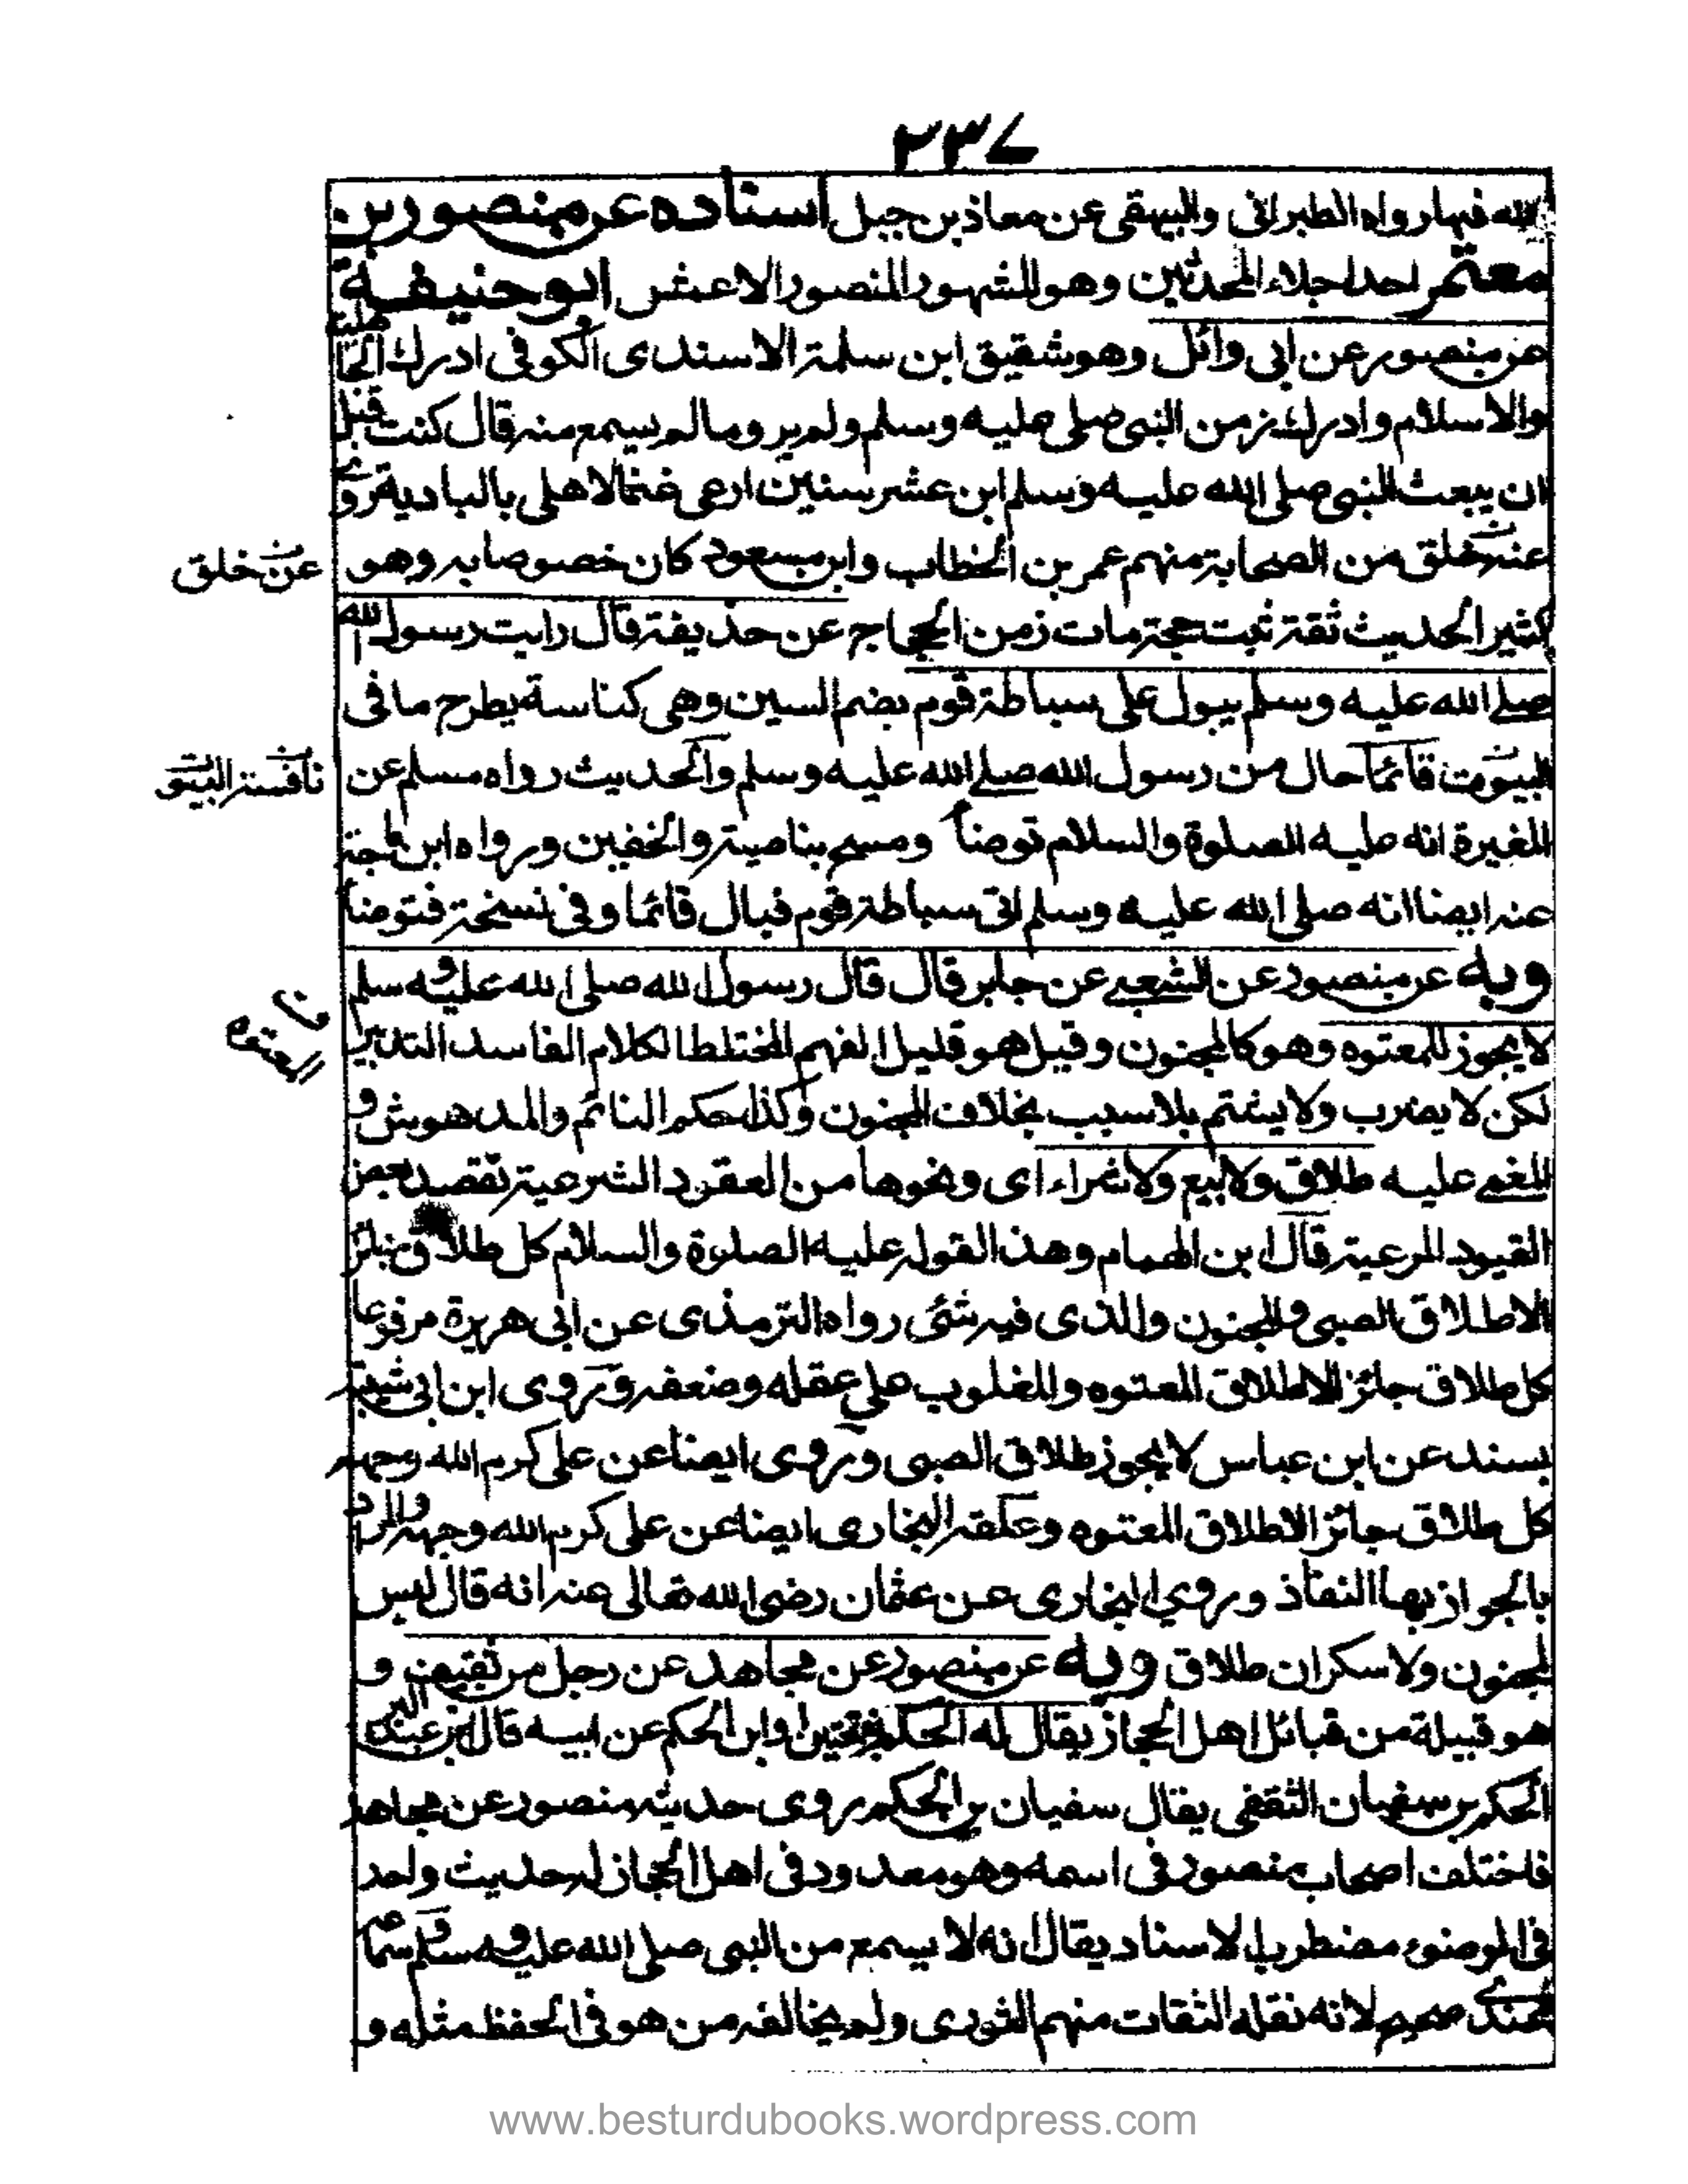 ٢٣٧
لله فيها رواه الطبرانی والبيهقی عن معاذ بن جبل اسناده عن منصور بن
معتمر احد اجلاء المحدثين وهو المشهور المنصور الاعمش ابو حنيفة
عن منصور عن ابی وائل وهو شقيق ابن سلمة الاسندی الكوفی ادرك الجاهلية
والاسلام وادرك زمن النبی صلی عليه وسلم ولم ير وما لم يسمع منه قال كنت قبل
ان يبعث النبی صلی الله عليه وسلم ابن عشر سنين ارعی غنما لاهلی بالبادية روی
عنه خلق من الصحابة منهم عمر بن الخطاب وابن مسعود كان خصوصا به وهو
عن خلق
كثير الحديث ثقة ثبت حجة مات زمن الحجاج عن حذيفة قال رايت رسول الله
صلے الله عليه وسلم يبول علی سباطة قوم بضم السين وهی كناسة يطرح ما فی
البيوت قائما حال من رسول الله صلے الله عليه وسلم والحديث رواه مسلم عن
المغيرة انه عليه الصلوة والسلام توضأ ومسح بناصيته والخفين ورواه ابن ماجة
عنه ايضا انه صلی الله عليه وسلم اتی سباطة قوم فبال قائما وفی نسخة فتوضأ
وبه عن منصور عن الشعبے عن جابر قال قال رسول الله صلی الله عليه وسلم
لا يجوز للمعتوه وهو كالمجنون وقيل هو قليل الفهم المختلط الكلام الفاسد التدبير
ن المعتوه
لكن لا يضرب ولا يشتم بلا سبب بخلاف المجنون وكذا حكم النائم والمدهوش و
المغمے عليه طلاق ولا بيع ولا شراء ای ونحوها من العقود الشرعية تقصد بعض
القيود المرعية قال ابن الهمام وهذا لقوله عليه الصلوة والسلام كل طلاق جائز
الا طلاق الصبی والمجنون والذی فيه شئ رواه الترمذی عن ابی هريرة مرفوعا
كل طلاق جائز الا طلاق المعتوه والمغلوب علے عقله وضعفه وروی ابن ابی شيبة
بسند عن ابن عباس لا يجوز طلاق الصبی وروی ايضا عن علی كرم الله وجهه
كل طلاق جائز الا طلاق المعتوه وعلقه البخاری ايضا عن علی كرم الله وجهه والمراد
بالجواز بها النفاذ وروی البخاری عن عثمان رضی الله تعالی عنه انه قال ليس
لمجنون ولا سكران طلاق وبه عن منصور عن مجاهد عن رجل من ثقيف و
هو قبيلة من قبائل اهل الحجاز يقال له الحكم بفتحتين او ابن الحكم عن ابيه قال ابن عبد البر
الحكم بن سفيان الثقفی يقال سفيان بن الحكم روی حديثه منصور عن مجاهد
فاختلف اصحاب منصور فی اسمه وهو معدود فی اهل الحجاز له حديث واحد
فی الوضوء مضطرب الاسناد يقال انه لا يسمع من النبی صلی الله عليه وسلم وسماعه
عندی صحيح لانه نقله الثقات منهم الثوری ولم يخالفه من هو فی الحفظ مثله و
www.besturdubooks.wordpress.com